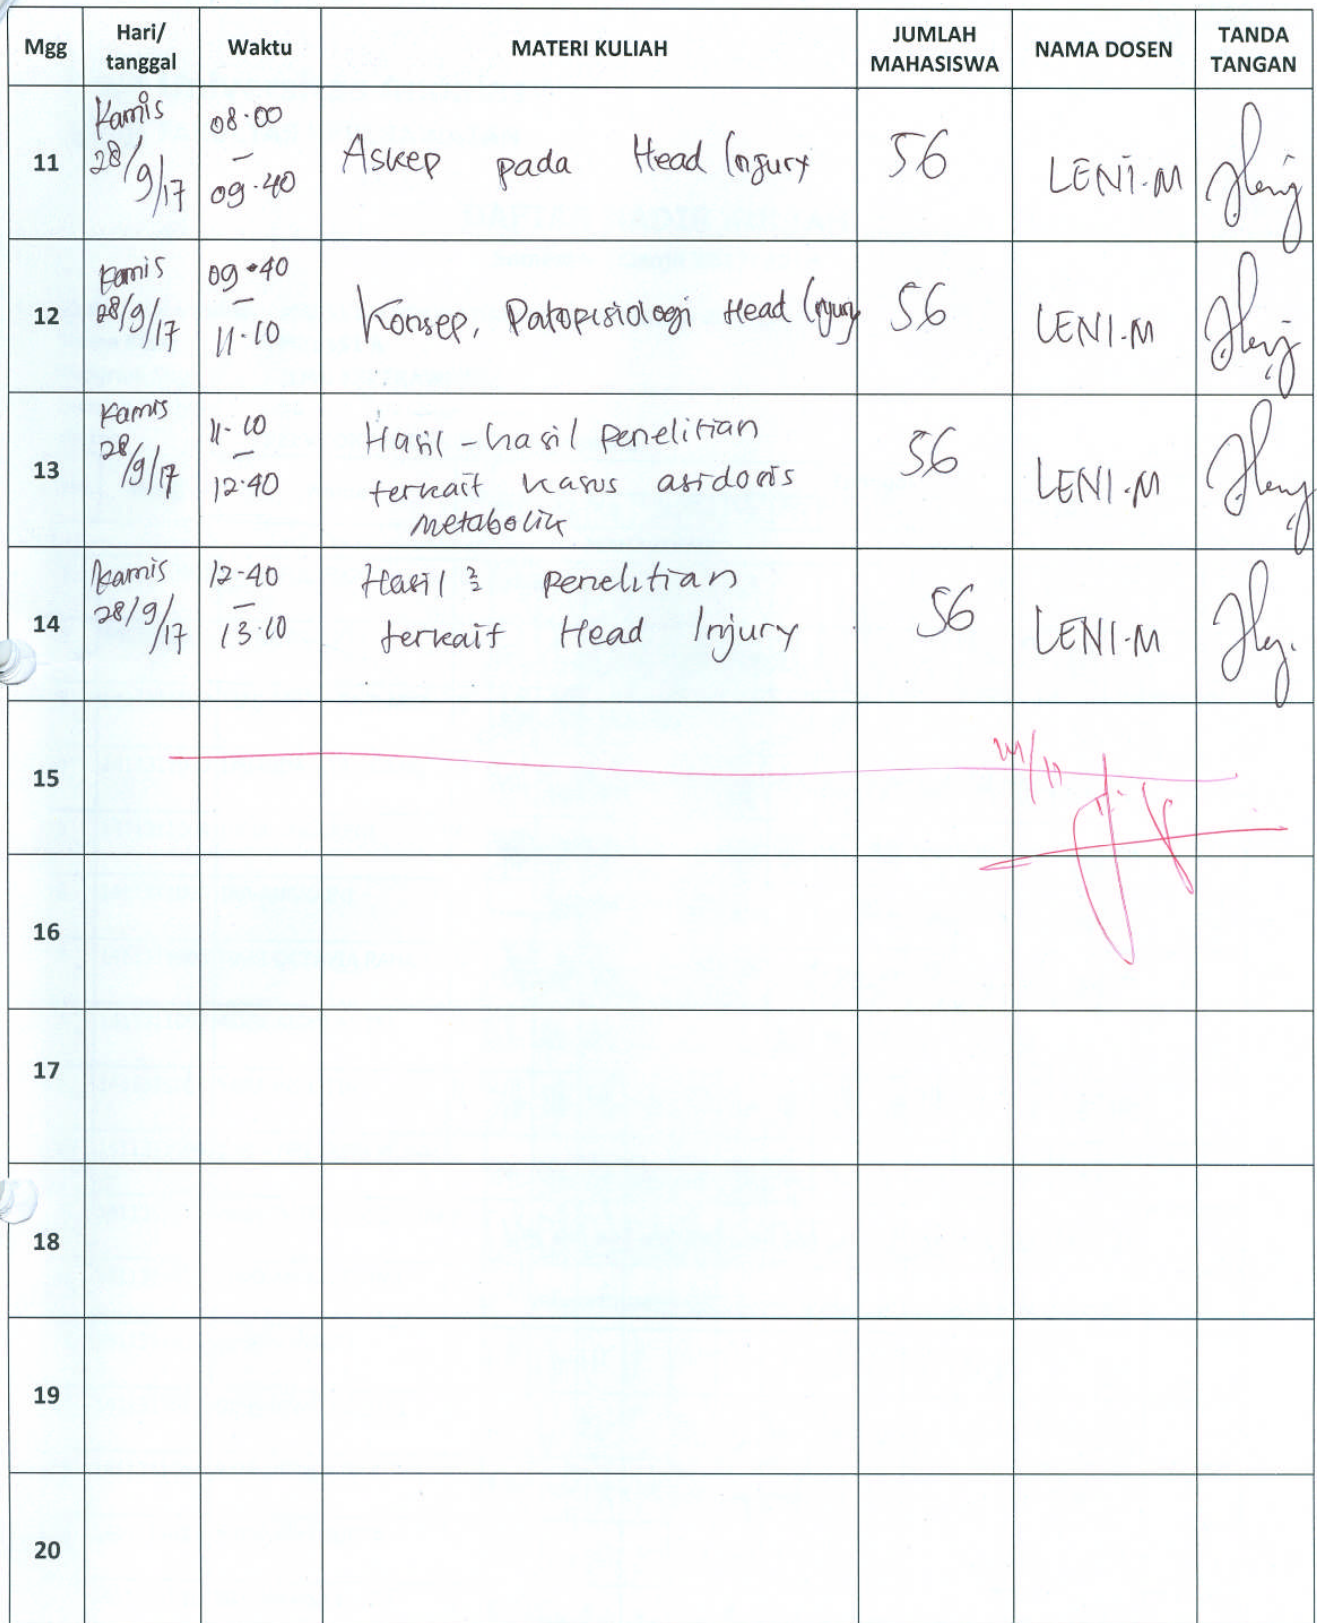 Mgg Hari/ tanggal Waktu MATERI KULIAH JUMLAH MAHASISWA NAMA DOSEN TANDA TANGAN
11 Kamis 28/9/17 08.00 - 09.40 Askep pada Head Injury 56 LENI.M
12 Kamis 28/9/17 09.40 - 11.10 Konsep, Patopisiologi Head Injury 56 LENI.M
13 Kamis 28/9/17 11-10 - 12.40 Hasil-hasil penelitian 56 LENI.M
terkait kasus asidosis
metabolik
14 Kamis 28/9/17 12-40 - 13.10 Hasil 2 penelitian 56 LENI.M
terkait Head Injury
15
16
17
18
19
20